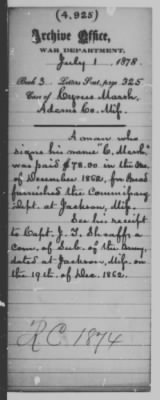 (4,925)
Archive Office,
WAR DEPARTMENT.
July 1, 1878.
Book 3. Letters Recd, page 325
Case of Cyrus Marsh,
Adams Co. Mif.
A man who
signs his name "C. Marsh"
was paid $78.00 in the mo.
of December 1862, for Beef
furnished the Commissary
Dept. at Jackson, Mif.
See his receipt
to Capt. J. F.
Com. of Sub. of the Army,
dated at Jackson, Mif. on
the 19th of Dec. 1862.
R C 1874